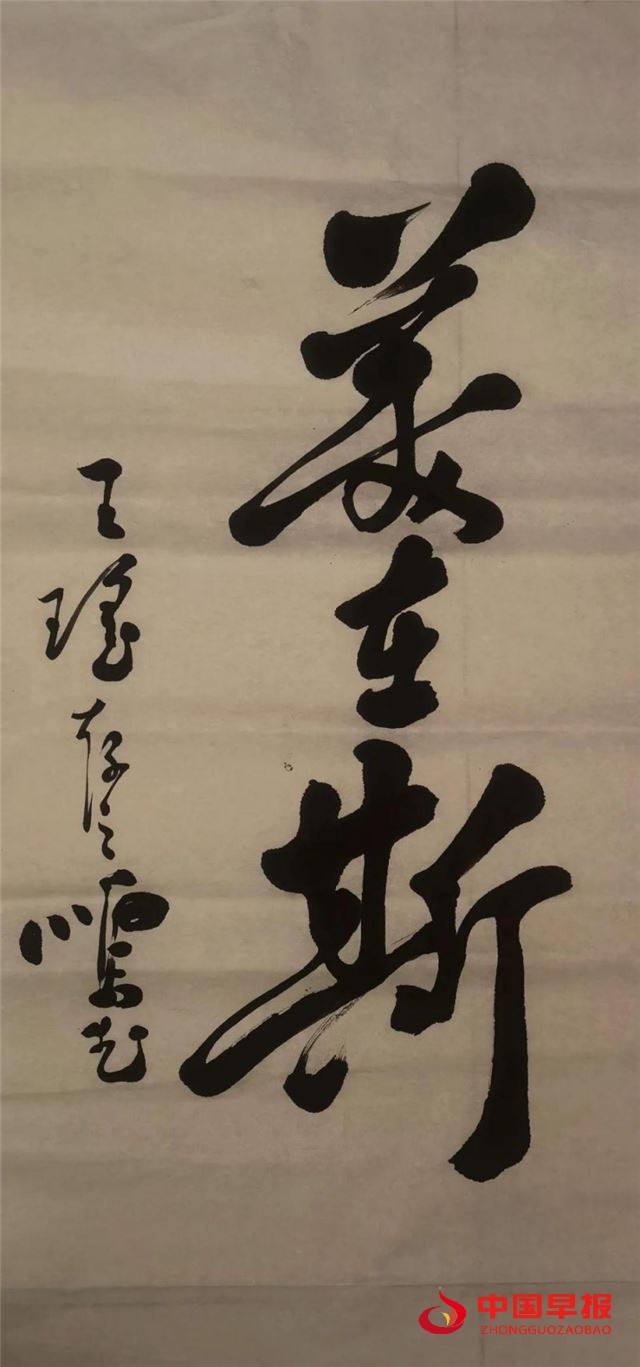 美在斯
王瑶存之
中国早报
ZHONGGUOZAOBAO